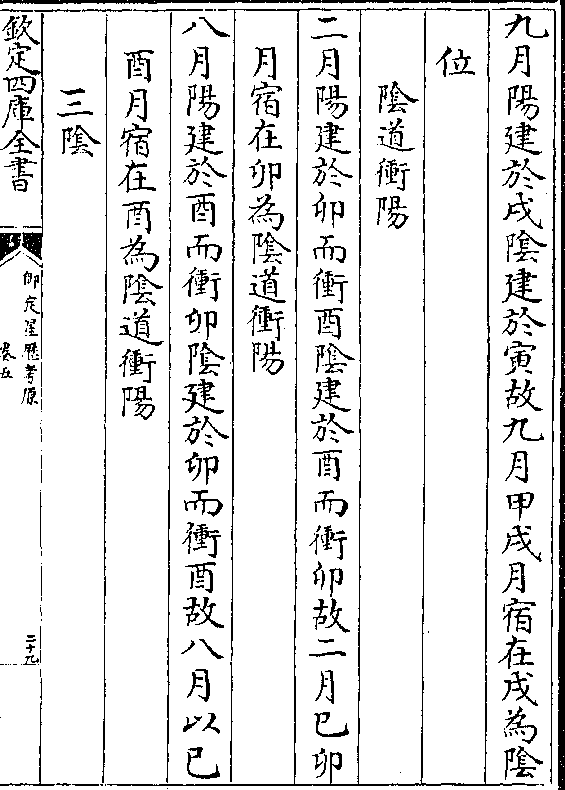 九月陽建於戌陰建於寅故九月甲戌月宿在戌為陰
位
陰道衝陽
二月陽建於卯而衝酉陰建於酉而衝卯故二月已卯
月宿在卯為陰道衝陽
八月陽建於酉而衝卯陰建於卯而衝酉故八月以已
酉月宿在酉為陰道衝陽
三陰
欽定四庫全書
御定星歷考原
卷五
二十九